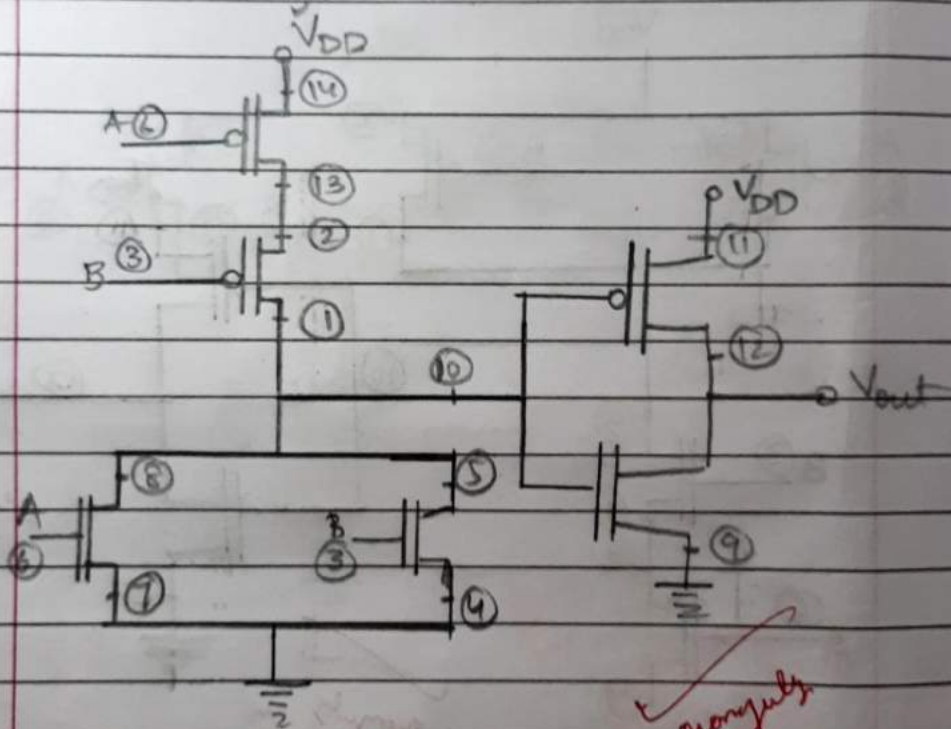 VDD
⑭
A ⑥
⑬
②
B ③
①
VDD
⑪
⑫
⑩
Vout
⑧
⑤
A
⑥
B
③
⑨
⑦
④